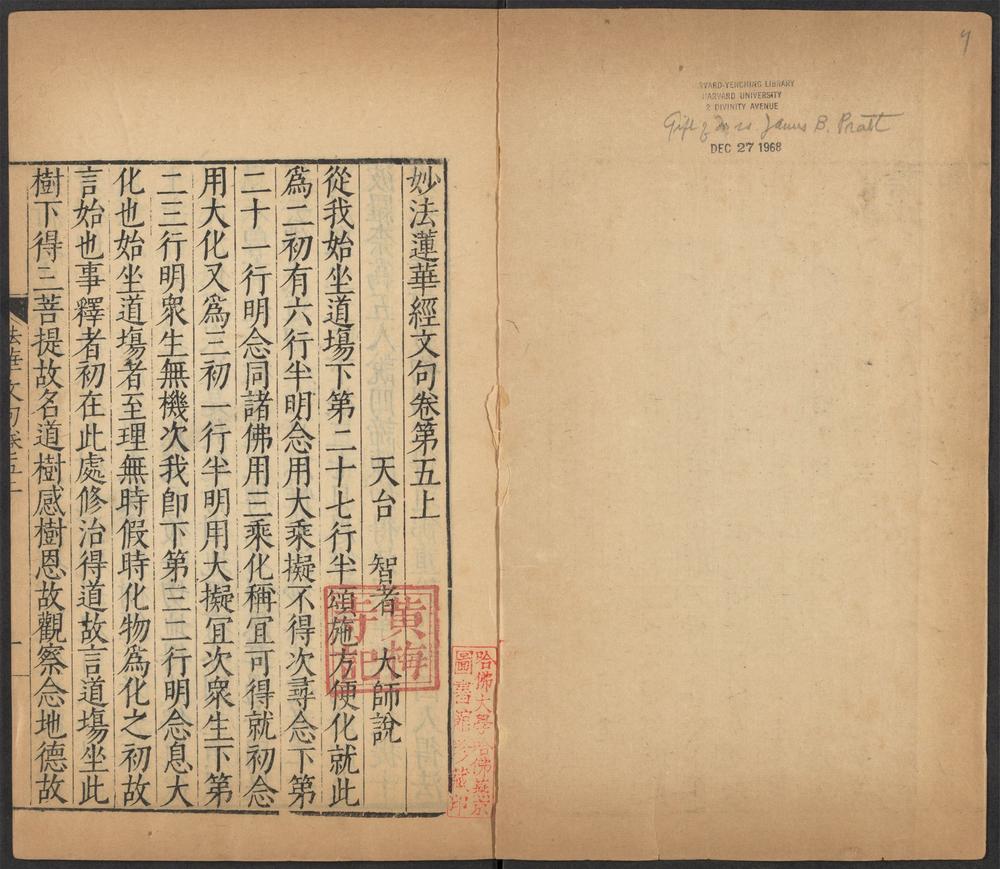 7
HARVARD-YENCHING LIBRARY
HARVARD UNIVERSITY
2 DIVINITY AVENUE
Gift of Mrs James B. Pratt
DEC 27 1968
妙法蓮華經文句卷第五上
天台 智者 大師說
從我始坐道場下第二十七行半頌施方便化就此
爲二初有六行半明念用大乘擬不得次尋念下第
二十一行明念同諸佛用三乘化稱冝可得就初念
用大化又爲三初一行半明用大擬冝次衆生下第
二三行明衆生無機次我卽下第三二行明念息大
化也始坐道場者至理無時假時化物爲化之初故
言始也事釋者初在此處修治得道故言道場坐此
樹下得三菩提故名道樹感樹恩故觀察念地德故
法華文句卷五上
黃梅
寺記
哈佛大學哈佛燕京
圖書館珍藏印